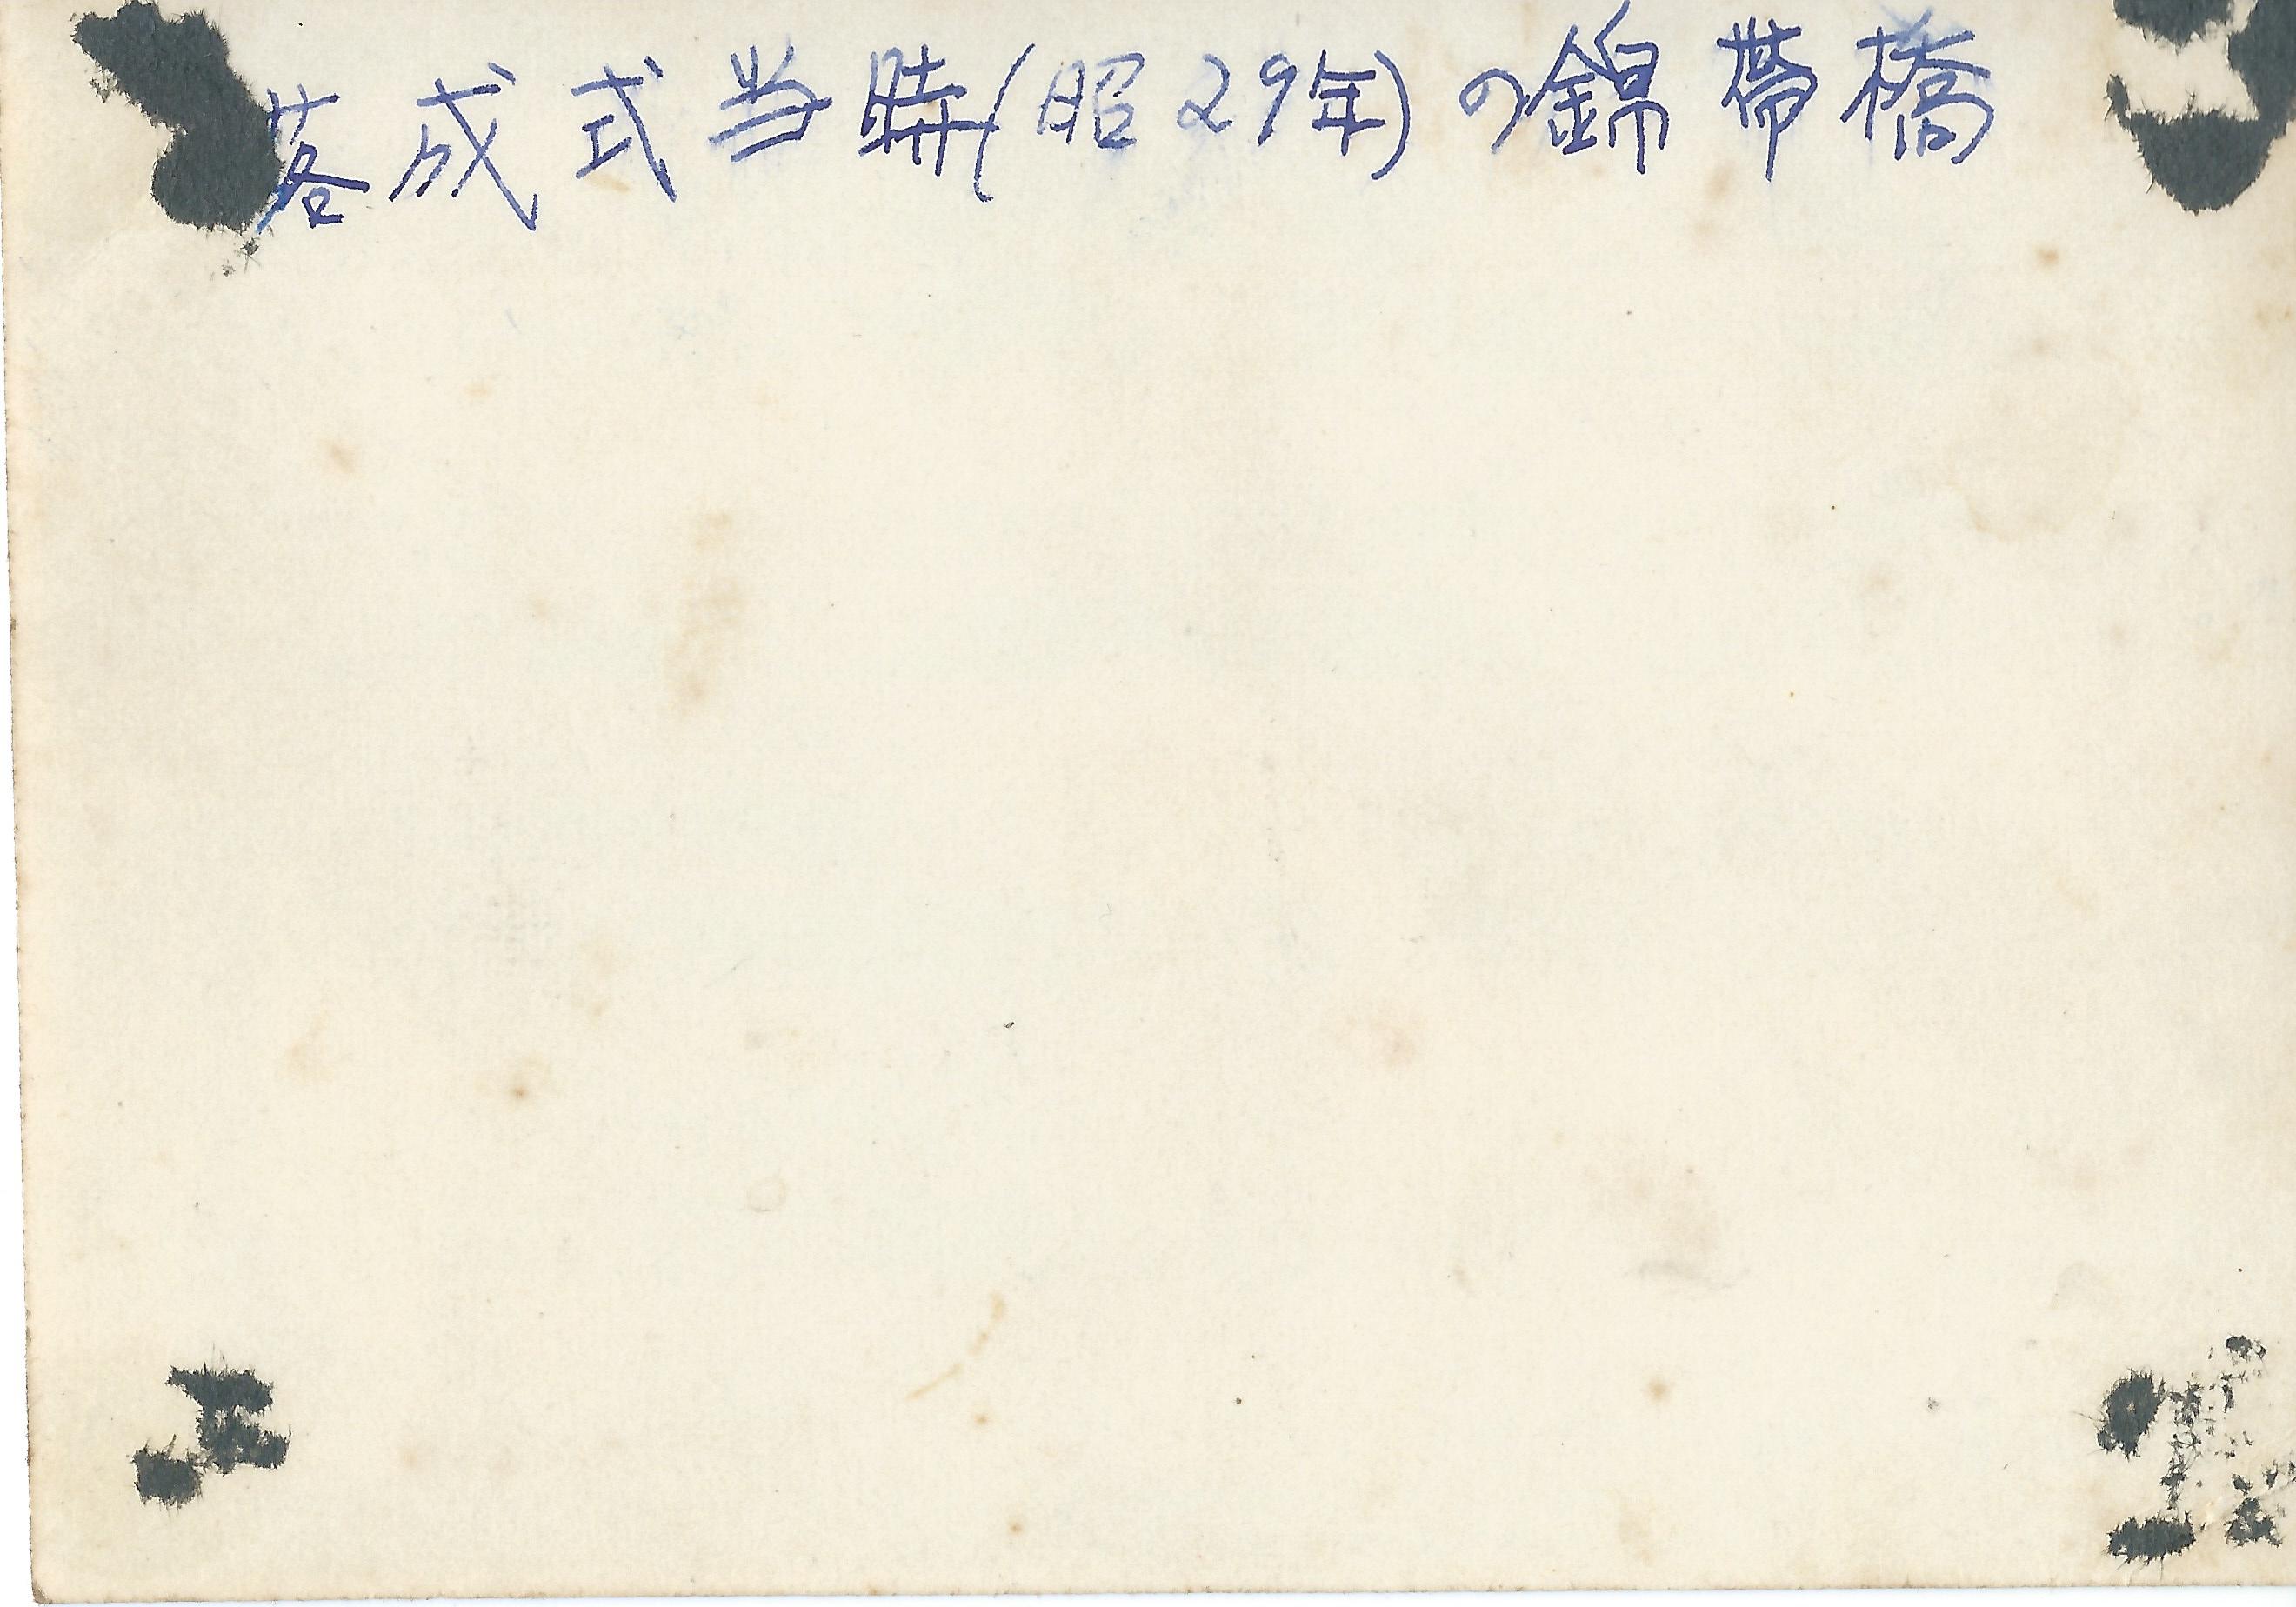 落成式当時(昭29年)の錦帯橋